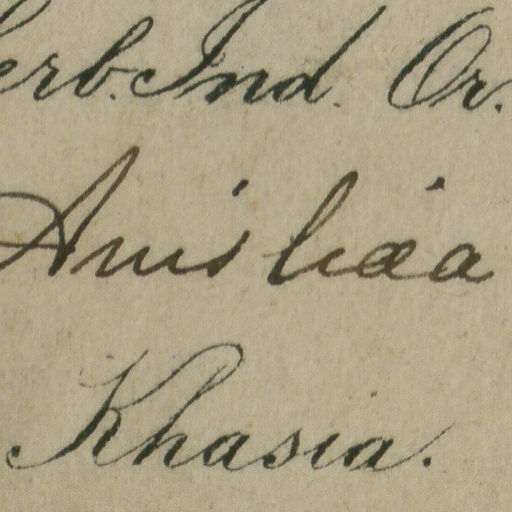 erb. Ind. Or.
Ainsliæa
Khasia.